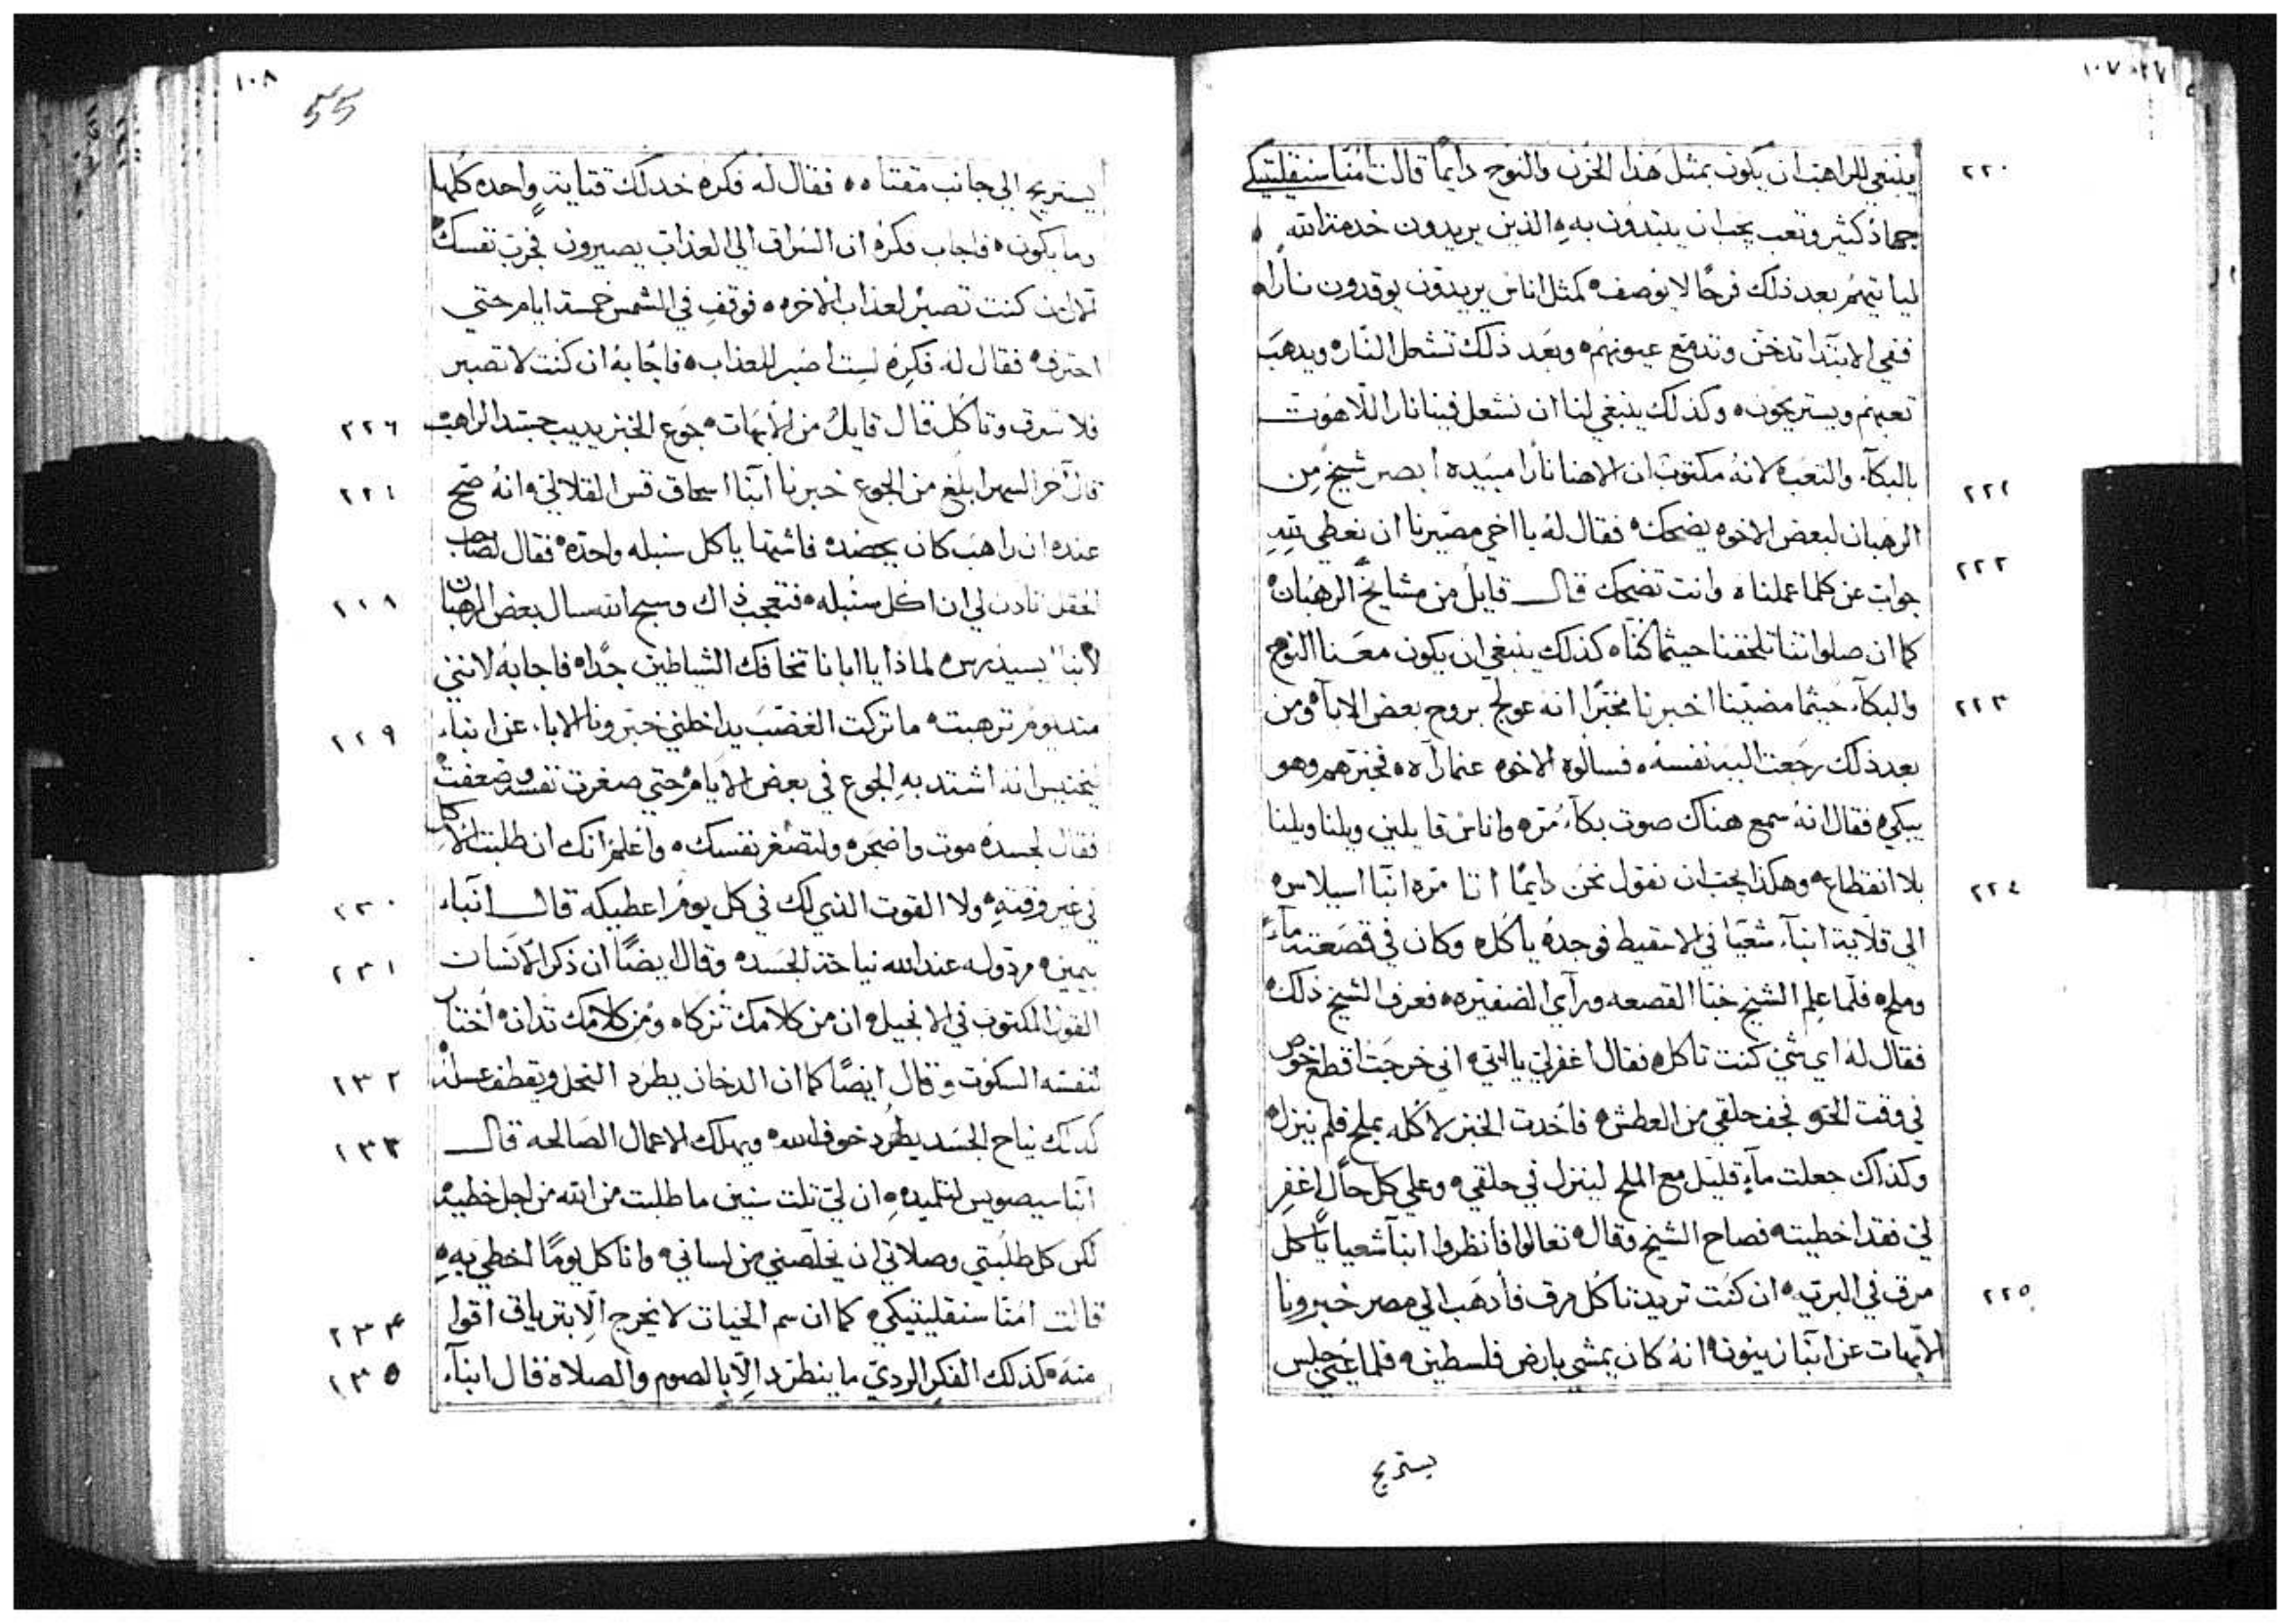 ١٠٧
٢٢٠
فينبغي للراهب ان يكون بمثل هذا الحزن والنوح دايمًا قالت امنا سنقليتيكي
جهاد كثير وتعب يجب ان يبتدون به الذين يريدون خدمة الله
ليا تيهم بعد ذلك فرحًا لا يوصف كمثل اناس يريدون يوقدون نارًا
ففي الابتدا تدخن وتدمع عيونهم وبعد ذلك تشعل النار ويدهب
تعبهم ويستريحون وكذلك ينبغي لنا ان نشعل فينا نار اللاهوت
بالبكاء والتعب لانه مكتوب ان الاهنا نارا مبيده ابصر شيخ من
٢٢١
الرهبان لبعض الاخوه يضحك فقال له يا اخي مصيرنا ان نعطي لله
٢٢٢
جواب عن كلما عملناه وانت تضحك قال قايل من مشايخ الرهبان
كما ان صلواتنا تلحقنا حيثما كنا كذلك ينبغي ان يكون معنا النوح
والبكاء حيثما مضينا اخبرنا مخبرا انه عولج بروح بعض الاباء ومن
٢٢٣
بعد ذلك رجعت اليه نفسه فسالوه الاخوه عنما راه فخبرهم وهو
يبكي فقال انه سمع هناك صوت بكاء مره واناس قايلين ويلنا ويلنا
بلا انقطاع وهكذا يجب ان نقول نحن دايمًا اتا مره انبا اسيلاس
٢٢٤
الي قلاية انباء شعيا في الاسقيط فوجده ياكل وكان في قصعته ماء
وملح فلما علم الشيخ خبا القصعه وراي الضفيره فعرف الشيخ ذلك
فقال له اي شي كنت تاكل فقال اغفر لي يا ابتي اني خرجت اقطع خوص
في وقت الحر فجف حلقي من العطش فاخدت الخبز لاكله بملح فلم ينزل
وكذاك جعلت ماء قليل مع الملح لينزل في حلقي وعلي كل حال اغفر
لي فقد اخطيت فصاح الشيخ فقال تعالوا فانظروا انبا شعيا ياكل
مرق في البريه ان كنت تريد تاكل مرق فادهب الي مصر خبرونا
٢٢٥
الابهات عن انبا زينون انه كان يمشي بارض فلسطين فلما عيي جلس
يستريح
١٠٨
55
يستريح الي جانب مقتاه فقال له فكره خد لك قتاية واحده كلها
وما يكون فاجاب فكره ان السراق الي العذاب يصيرون فجرب نفسك
الان ان كنت تصبر لعذاب الاخره فوقف في الشمس خمسة ايام حتي
احترق فقال له فكره لست اصبر للعذاب فاجابه ان كنت لا تصبر
فلا تسرق وتاكل قال قايل من الابهات جوع الخبز يديب جسد الراهب
٢٢٦
قال اخر السهر ابلغ من الجوع خبرنا انبا اسحاق قس القلالي انه صح
عنده ان راهب كان يحصد فاشتها ياكل سنبله واحده فقال لصاحب
الحقل تادن لي ان اكل سنبله فتعجب ذاك وسبح الله سال بعض الرهبان
٢٢٨
لانبا يسيدرس لماذا يا ابانا تخافك الشياطين جدًا فاجابه لانني
منديوم ترهبت ما تركت الغضب يداخلني خبرونا الاباء عن انباء
٢٢٩
انه اشتد به الجوع في بعض الايام حتي صغرت نفسه وضعفت
فقال لجسده موت واضجر ولتصغر نفسك واعلم انك ان طلبت الاكل
في غير وقته ولا القوت الذي لك في كل يوم اعطيكه قال انباء
٢٣٠
بيمين مردوله عند الله نياحة الجسد وقال ايضًا ان ذكر الانسان
٢٣١
القول المكتوب في الانجيل ان من كلامك تزكا ومن كلامك تدان اختار
لنفسه السكوت وقال ايضًا كما ان الدخان يطرد النحل ويقطف عسله
٢٣٢
كدلك نياح الجسد يطرد خوف الله ويهلك الاعمال الصالحه قال
٢٣٣
انبا سيصويس لتلميده ان لي تلت سنين ما طلبت من الله من اجل خطيه
لكن كل طلبتي وصلاتي ان يخلصني من لساني وانا كل يومًا اخطي به
قالت امنا سنقليتيكي كما ان سم الحيات لا يخرج الا بترياق اقوا
٢٣٤
منه كذلك الفكر الردي ما ينطرد الا بالصوم والصلاه قال انباء
٢٣٥